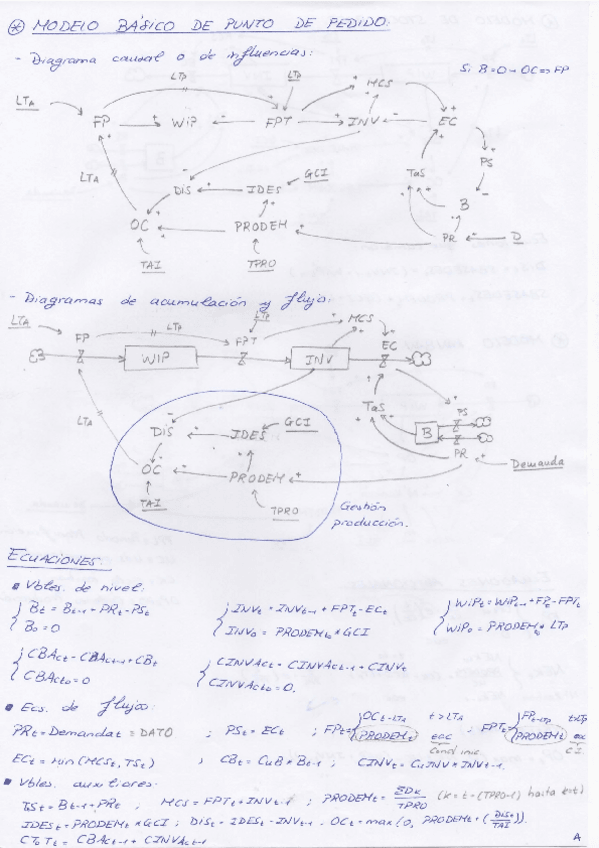 ⊛ MODELO BÁSICO DE PUNTO DE PEDIDO:
- Diagrama causal o de influencias:
Si B=0 → OC=>FP
LTA
LTP
LTP
MCS
FP
WiP
FPT
INV
EC
PS
LTA
DiS
IDES
GCI
TaS
B
OC
PRODEM
PR
D
TAI
TPRO
- Diagramas de acumulación y flujo:
LTA
FP
LTP
LTP
MCS
FPT
EC
WIP
INV
LTA
TaS
PS
B
DiS
IDES
GCI
PR
OC
PRODEM
Demanda
TAI
TPRO
Gestión
producción.
ECUACIONES:
▪ Vbles. de nivel:
Bt = Bt-1 + PRt - PSt
B0 = 0
INVt = INVt-1 + FPTt - ECt
INV0 = PRODEMt0 × GCI
WiPt = WiPt-1 + FPt - FPTt
WiP0 = PRODEMt0 × LTP
CBACt = CBACt-1 + CBt
CBACt0 = 0
CINVACt = CINVACt-1 + CINVt
CINVACt0 = 0.
▪ Ecs. de flujo:
PRt = Demandat = DATO ; PSt = ECt ; FPt = { OCt-LTA t>LTA
PRODEMt eoc
Cond. inic.
FPTt = { FPt-LTP t>LTP
PRODEMt eoc
C.I.
ECt = min(MCSt, TSt) ; CBt = CuB × Bt-1 ; CINVt = CuINV × INVt-1.
▪ Vbles. auxiliares:
TSt = Bt-1 + PRt ; MCS = FPTt + INVt-1 ; PRODEMt = ΣDk / TPRO (k = t-(TPRO-1) hasta k=t)
IDESt = PRODEMt × GCI ; DiSt = IDESt - INVt-1 . OCt = max(0, PRODEMt + (DiSt / TAI))
CToTt = CBACt-1 + CINVACt-1
A